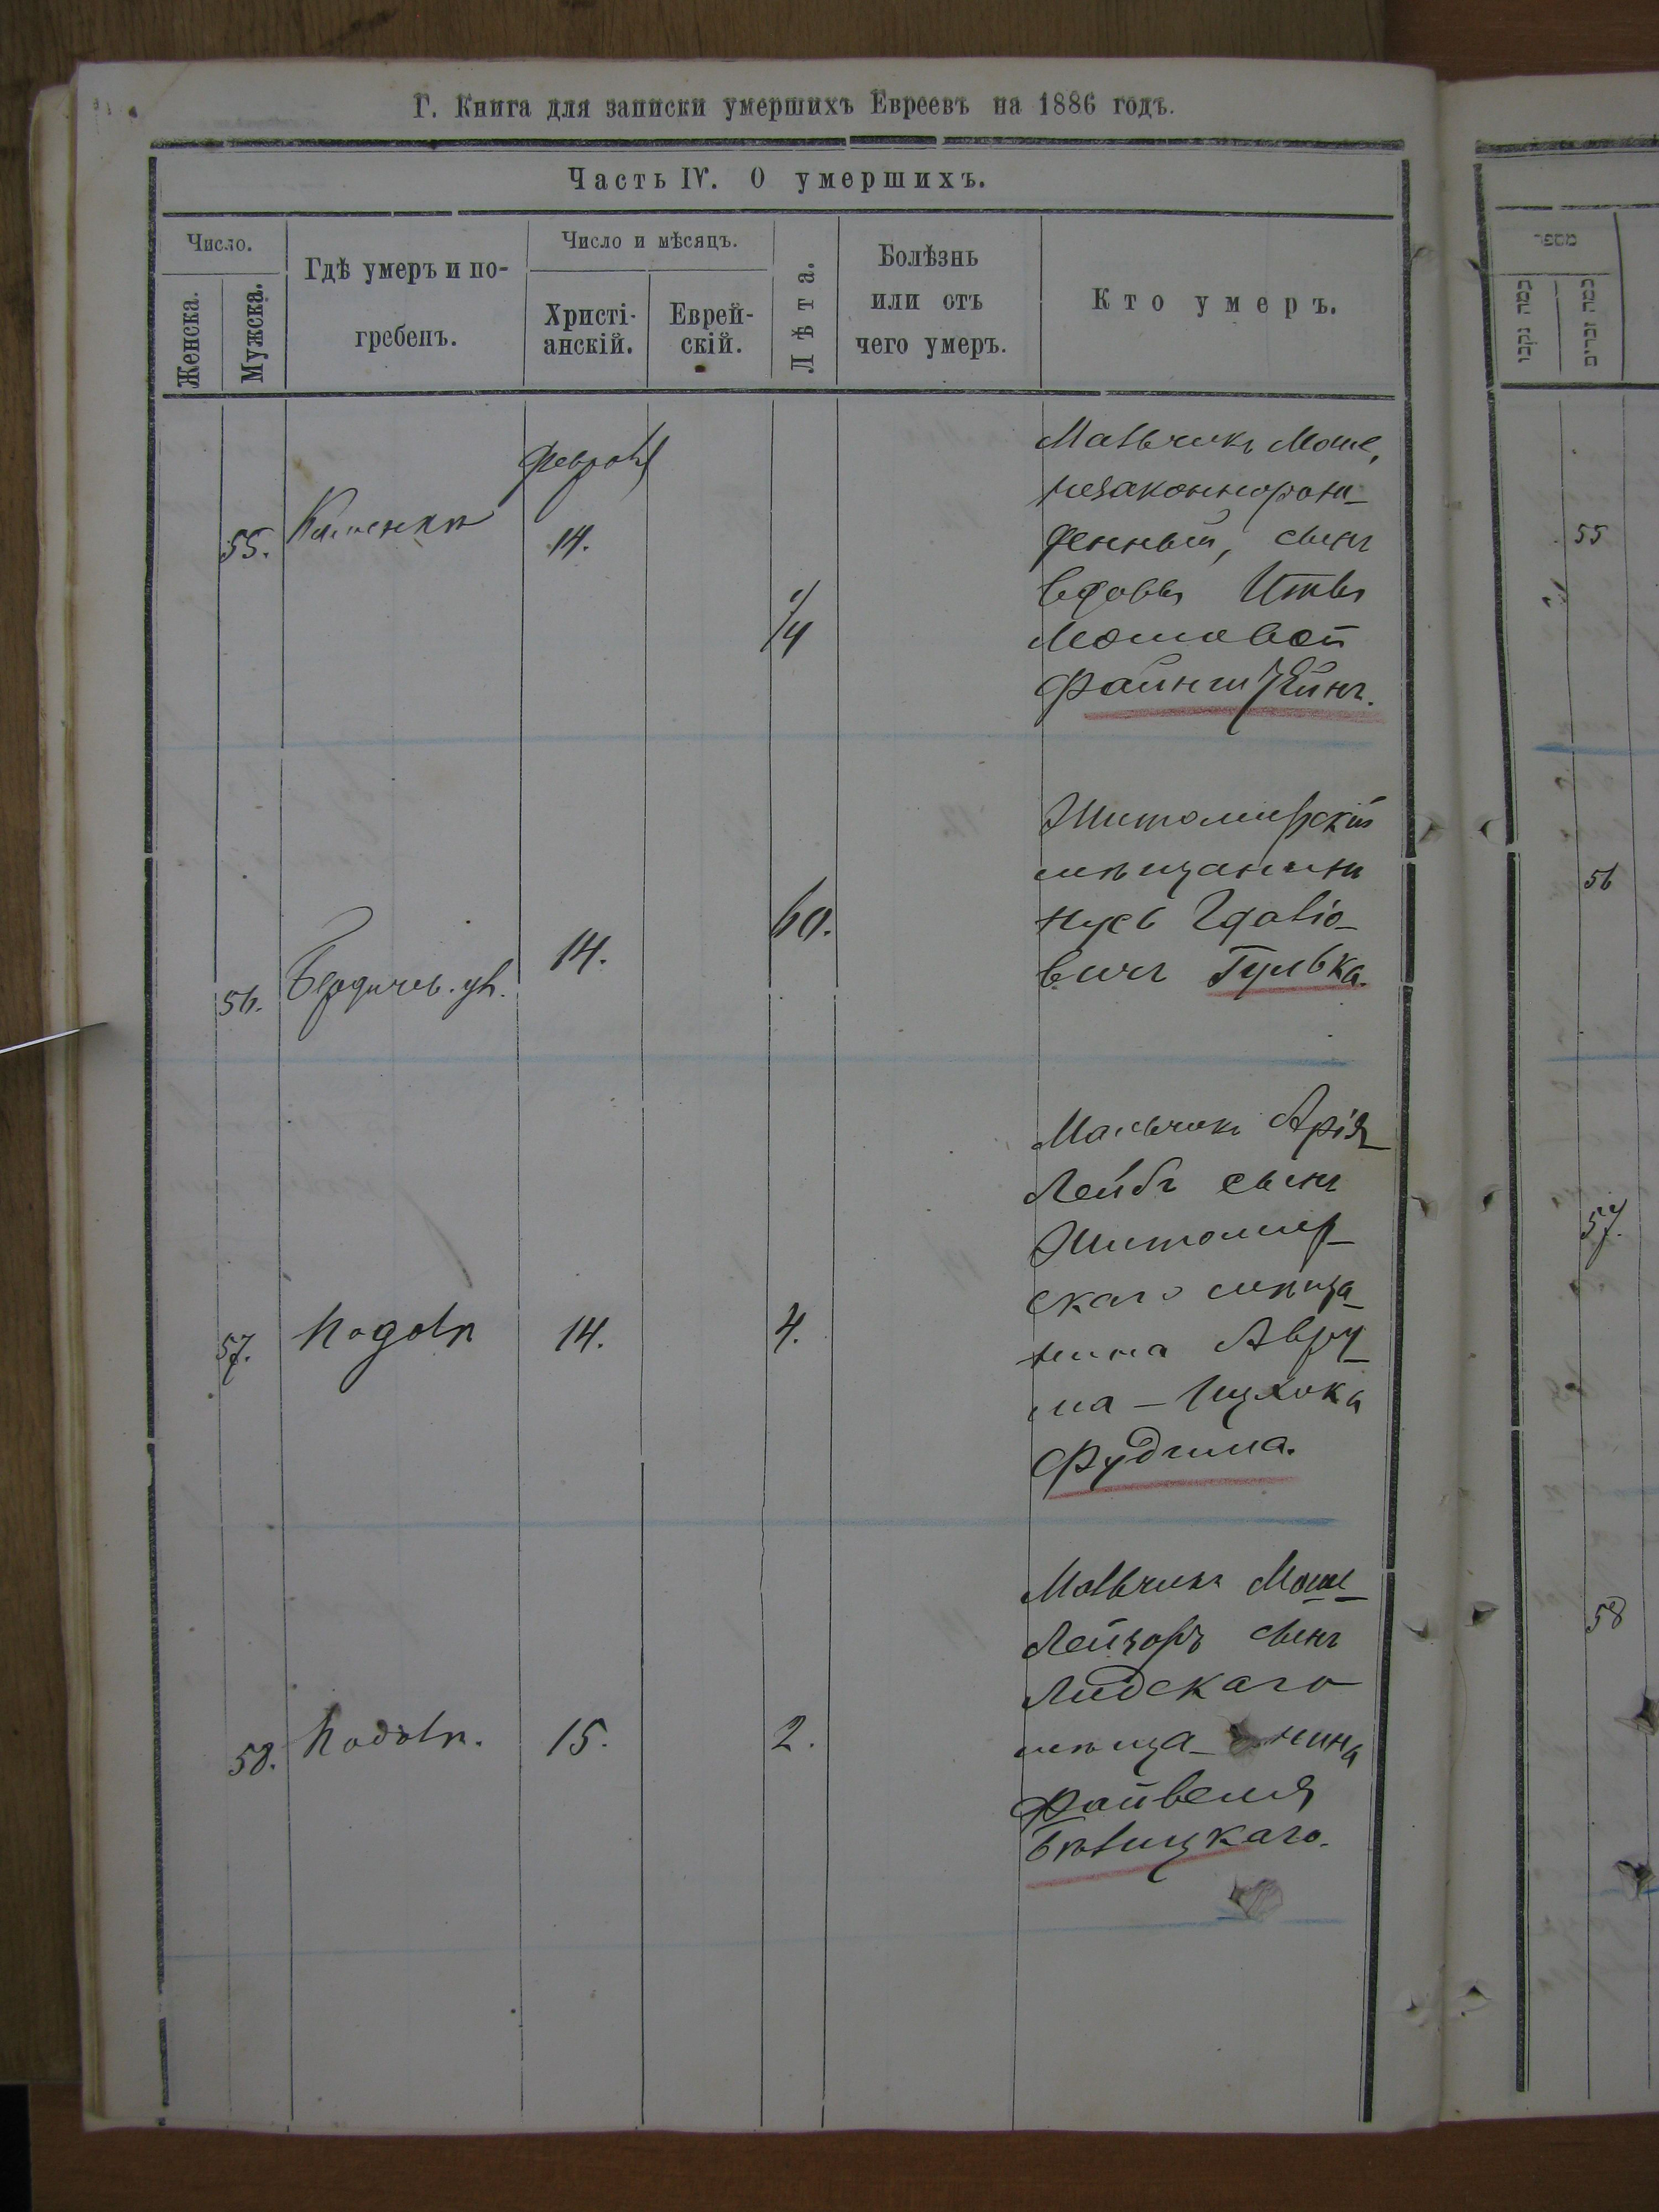 Г. Книга для записки умершихъ Евреевъ на 1886 годъ.
Часть IV. О умершихъ.
Число.
Женска.
Мужска.
Гдѣ умеръ и по-
гребенъ.
Число и мѣсяцъ.
Христі-
анскій.
Еврей-
скій.
Лѣта.
Болѣзнь
или отъ
чего умеръ.
Кто умеръ.
55.
Каменка
Февраля
14.
1/4
Мальчикъ Моше,
незаконнорож-
денный, сынъ
вдовы Итты
Мошковой
Файнштейнъ.
56.
Бердичев. ул.
14.
60.
Житомирскій
мѣщанинъ
Нусь Гдаліо-
вичъ Гулька.
57.
Подолъ
14.
4.
Мальчикъ Арія
Лейбъ сынъ
Житомир-
скаго мѣща-
нина Авру-
ма-Ицхока
Фудима.
58.
Подолъ.
15.
2.
Мальчикъ Моше-
Лейзоръ сынъ
Лидскаго
мѣща-нина
Файвеля
Бѣлицкаго.
כמה נקבו
כמה זכרים
55
56
57.
58